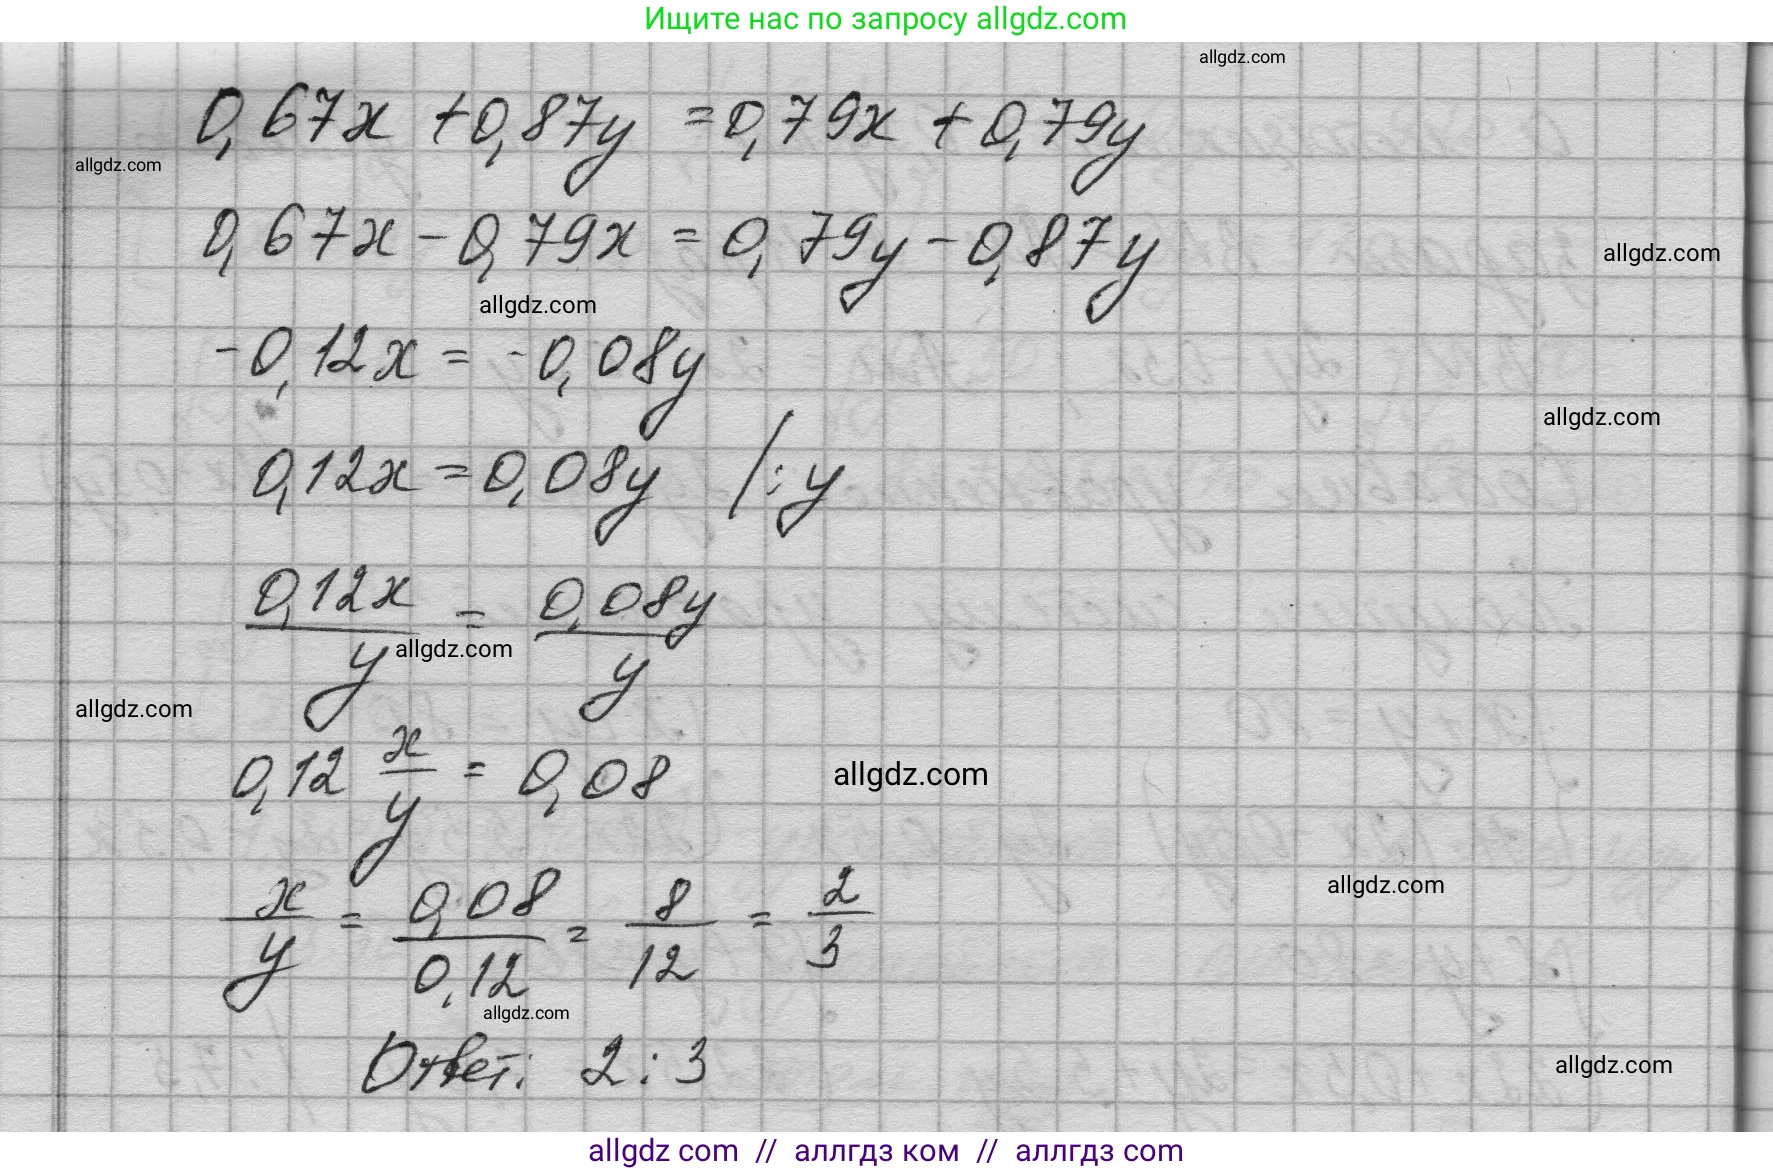 Ищите нас по запросу allgdz.com
allgdz.com
0,67x + 0,87y = 0,79x + 0,79y
allgdz.com
0,67x - 0,79x = 0,79y - 0,87y
allgdz.com
allgdz.com
-0,12x = -0,08y
allgdz.com
0,12x = 0,08y /:y
0,12x/y = 0,08y/y
allgdz.com
allgdz.com
0,12 x/y = 0,08
allgdz.com
allgdz.com
x/y = 0,08/0,12 = 8/12 = 2/3
allgdz.com
Ответ: 2:3
allgdz.com
allgdz com // аллгдз ком // аллгдз com